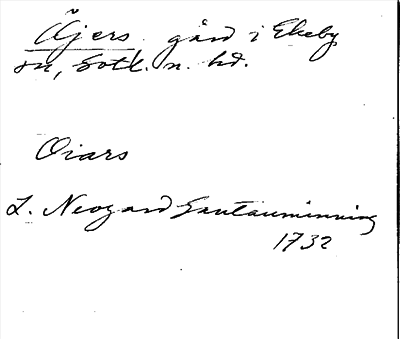 Äjers gård i Ekeby
sn, Gotl. n. hd.
Oiars
L. Neogard Gautauminning
1732